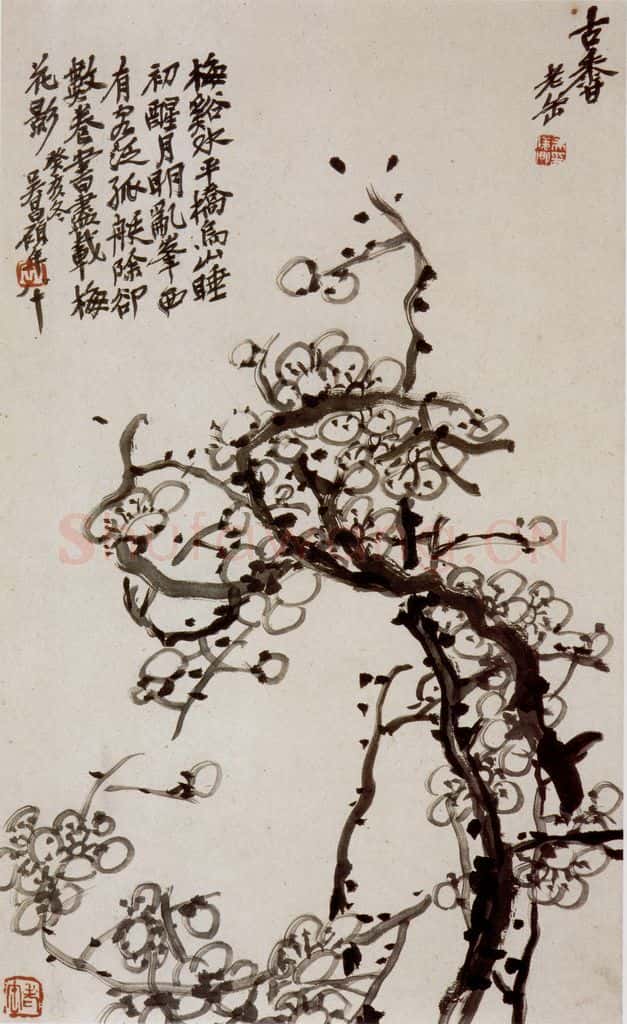 古香
老缶
梅谿水平橋烏山睡
初醒月明亂峯西
有客泛孤艇除卻
數卷書盡載梅
花影
癸亥冬
吳昌碩年八十
Shufawang.CN